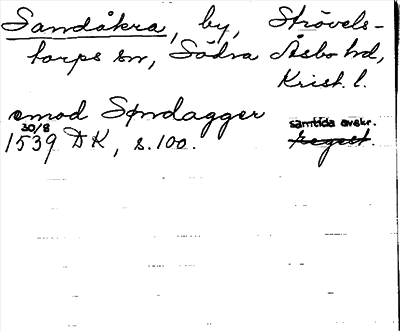 Sandåkra, by, Strövels-
torps sn, Södra Åsbo hd,
Krist. l.
emod Søndagger
30/8
1539 DK, s. 100. samtida avskr.
regest.